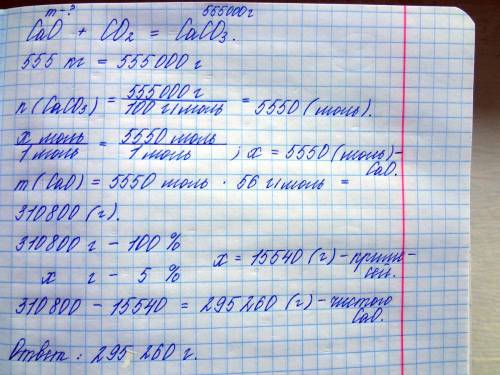 m-?
555000 г
CaO + CO₂ = CaCO₃.
555 кг = 555000 г
n(CaCO₃) = 555000 г / 100 г/моль = 5550 (моль).
x моль / 1 моль = 5550 моль / 1 моль ; x = 5550 (моль) - CaO.
m(CaO) = 5550 моль · 56 г/моль =
310800 (г).
310800 г - 100 %
x г - 5 %
x = 15540 (г) - примесь.
310800 - 15540 = 295260 (г) - чистого CaO.
Ответ: 295 260 г.